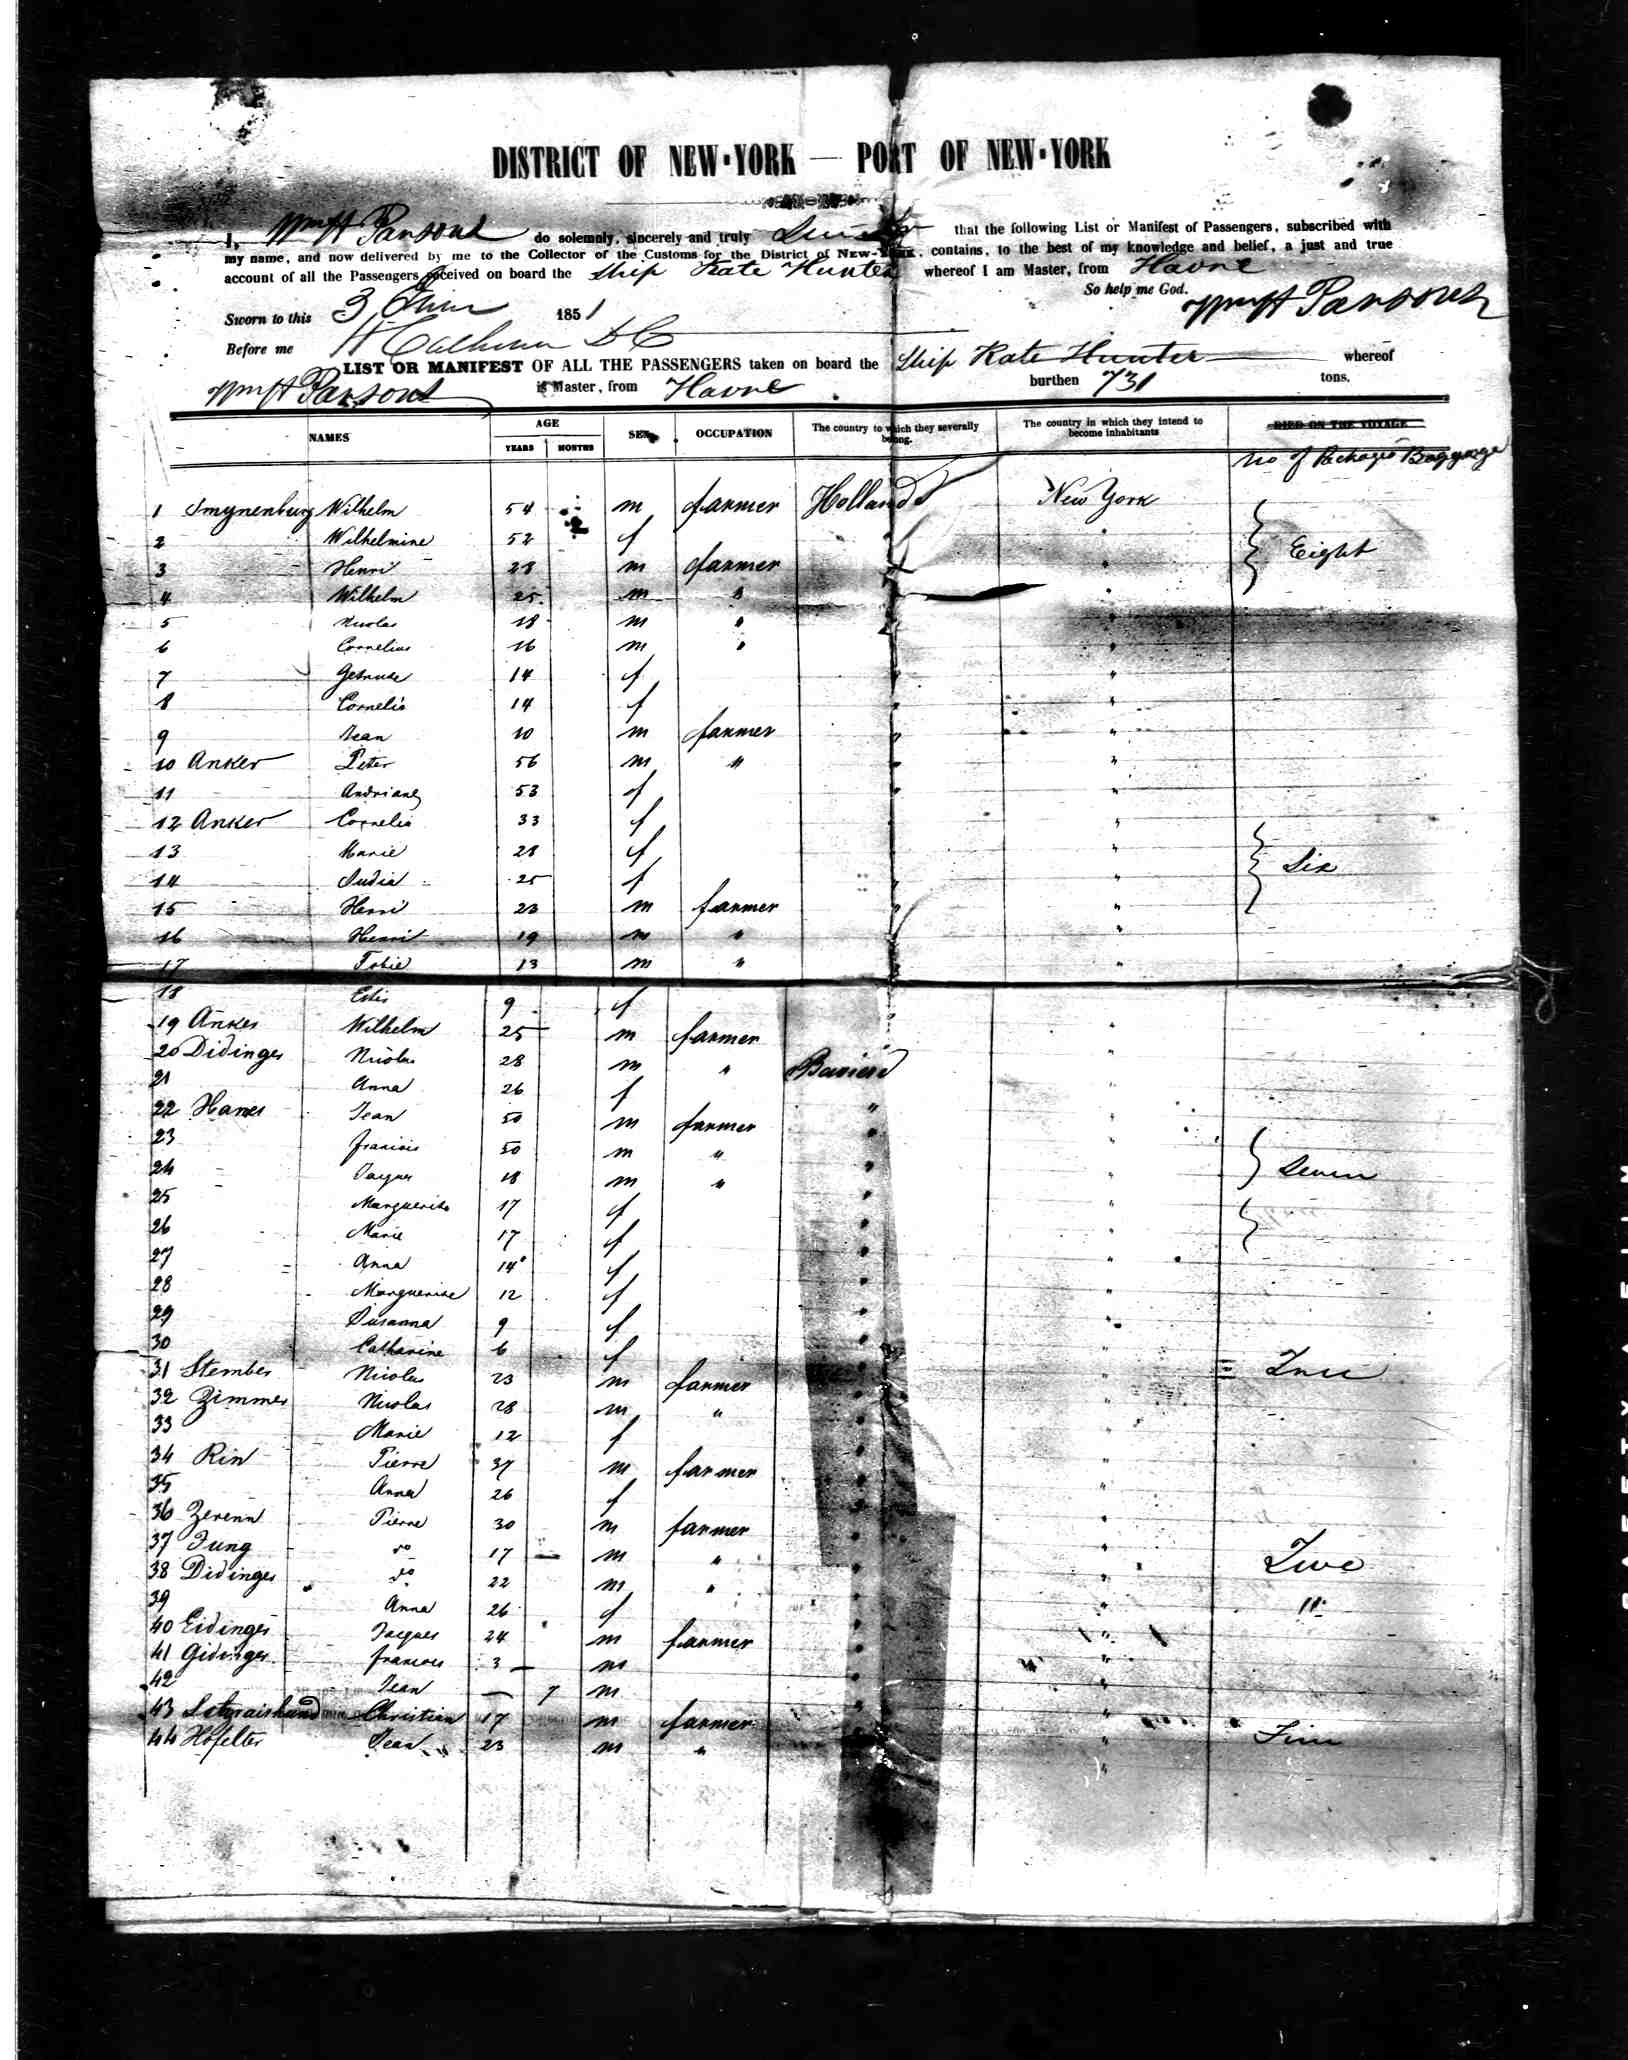 DISTRICT OF NEW-YORK — PORT OF NEW-YORK
I, Wm H Parsons do solemnly, sincerely and truly Swear that the following List or Manifest of Passengers, subscribed with
my name, and now delivered by me to the Collector of the Customs for the District of NEW-YORK, contains, to the best of my knowledge and belief, a just and true
account of all the Passengers received on board the Ship Kate Hunter whereof I am Master, from Havre
So help me God.
Sworn to this 3 June 1851 Wm H Parsons
Before me H Calhoun D C
LIST OR MANIFEST OF ALL THE PASSENGERS taken on board the Ship Kate Hunter whereof
Wm H Parsons is Master, from Havre burthen 731 tons.
NAMES AGE YEARS MONTHS SEX OCCUPATION The country to which they severally belong. The country in which they intend to become inhabitants DIED ON THE VOYAGE
No of Packages Baggage
1 Smynenburg Wilhelm 54 m farmer Holland New York
2 Wilhelmine 52 f "
3 Henri 28 m farmer " Eight
4 Wilhelm 25 m " "
5 Nicolas 18 m " "
6 Cornelius 16 m " "
7 Getrude 14 f " "
8 Cornelis 14 f " "
9 Jean 10 m farmer " "
10 Anker Peter 56 m " " "
11 Andriane 53 f " "
12 Anker Cornelis 33 f "
13 Marie 28 f "
14 25 f " " Six
15 Henri 23 m farmer " "
16 Henri 19 m " "
17 Tobie 13 m " "
18 9 f
19 Anker Wilhelm 25 m farmer "
20 Didinger Nicolas 28 m " Baviere "
21 Anna 26 f " "
22 Hanes Jean 50 m farmer " "
23 francois 50 m " " "
24 Jacques 18 m " " " Seven
25 Marguerite 17 f " "
26 Marie 17 f " "
27 Anna 14 f " "
28 Marguerite 12 f " "
29 Susanna 9 f " "
30 Catharine 6 f " "
31 Stember Nicolas 23 m farmer "
32 Zimmer Nicolas 28 m " "
33 Marie 12 f "
34 Rin Pierre 37 m farmer "
35 Anna 26 f "
36 Zerenn Pierre 30 m farmer "
37 Jung do 17 — m " " Two
38 Didinger do 22 m " "
39 Anna 26 f " "
40 Eidinger Jacques 24 m farmer "
41 Gidinger francois 3 — m "
42 Jean — 7 m "
43 Christian 17 m farmer "
44 Hofelter Jean 23 m " "